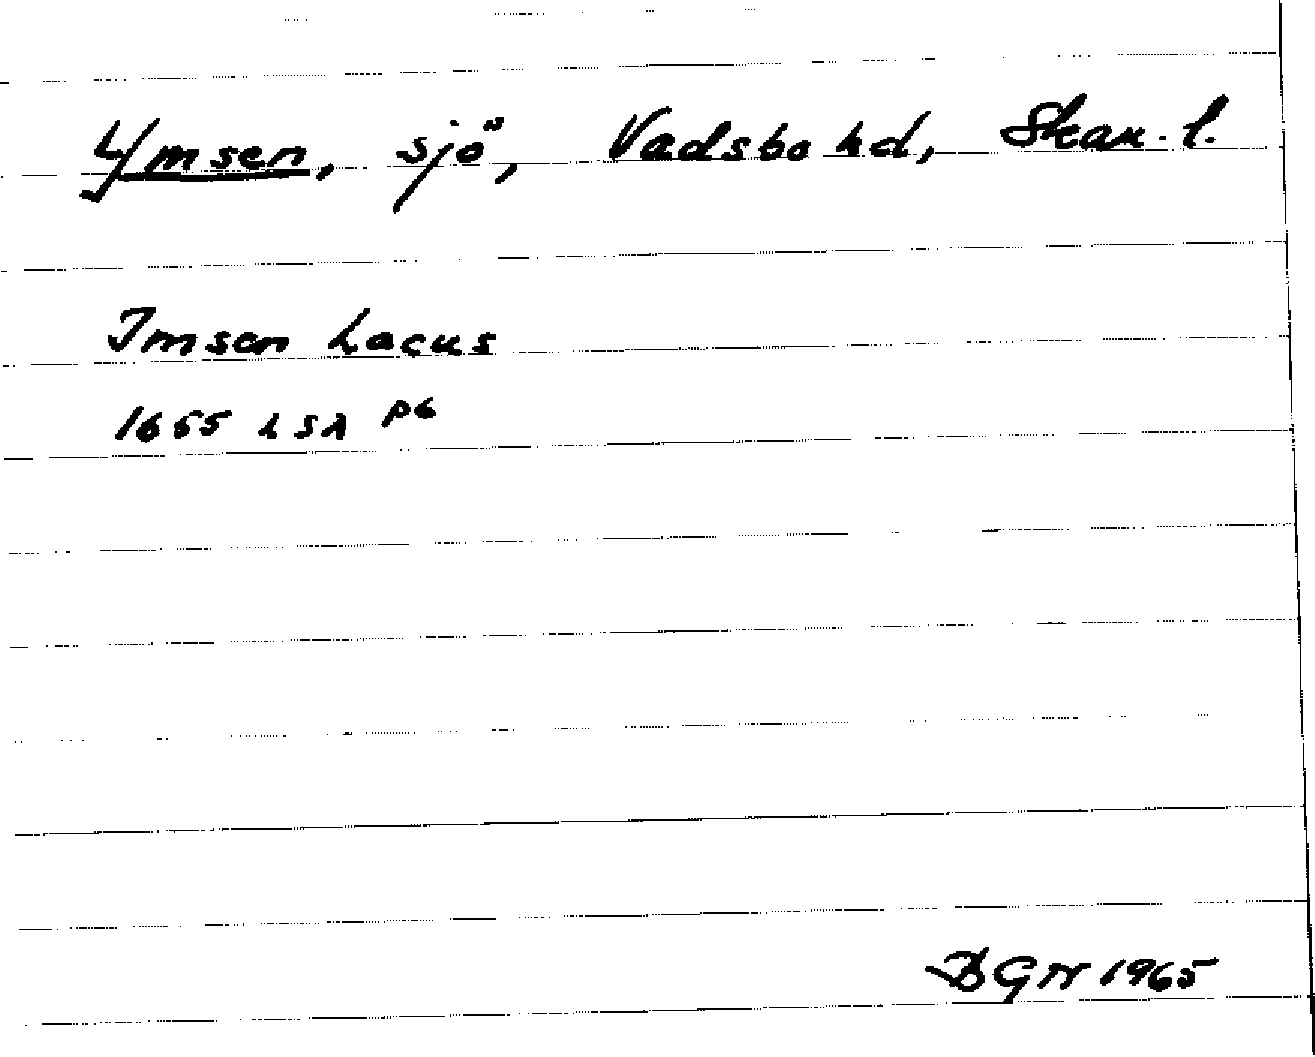 Ymsen, sjö, Vadsbo hd, Skar. l.
Imsen Lacus
1655 LSA p6
BGN 1965